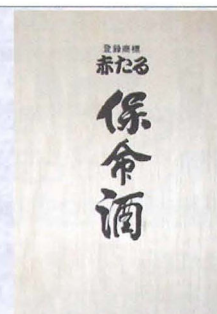 登録商標
赤たる
保命酒